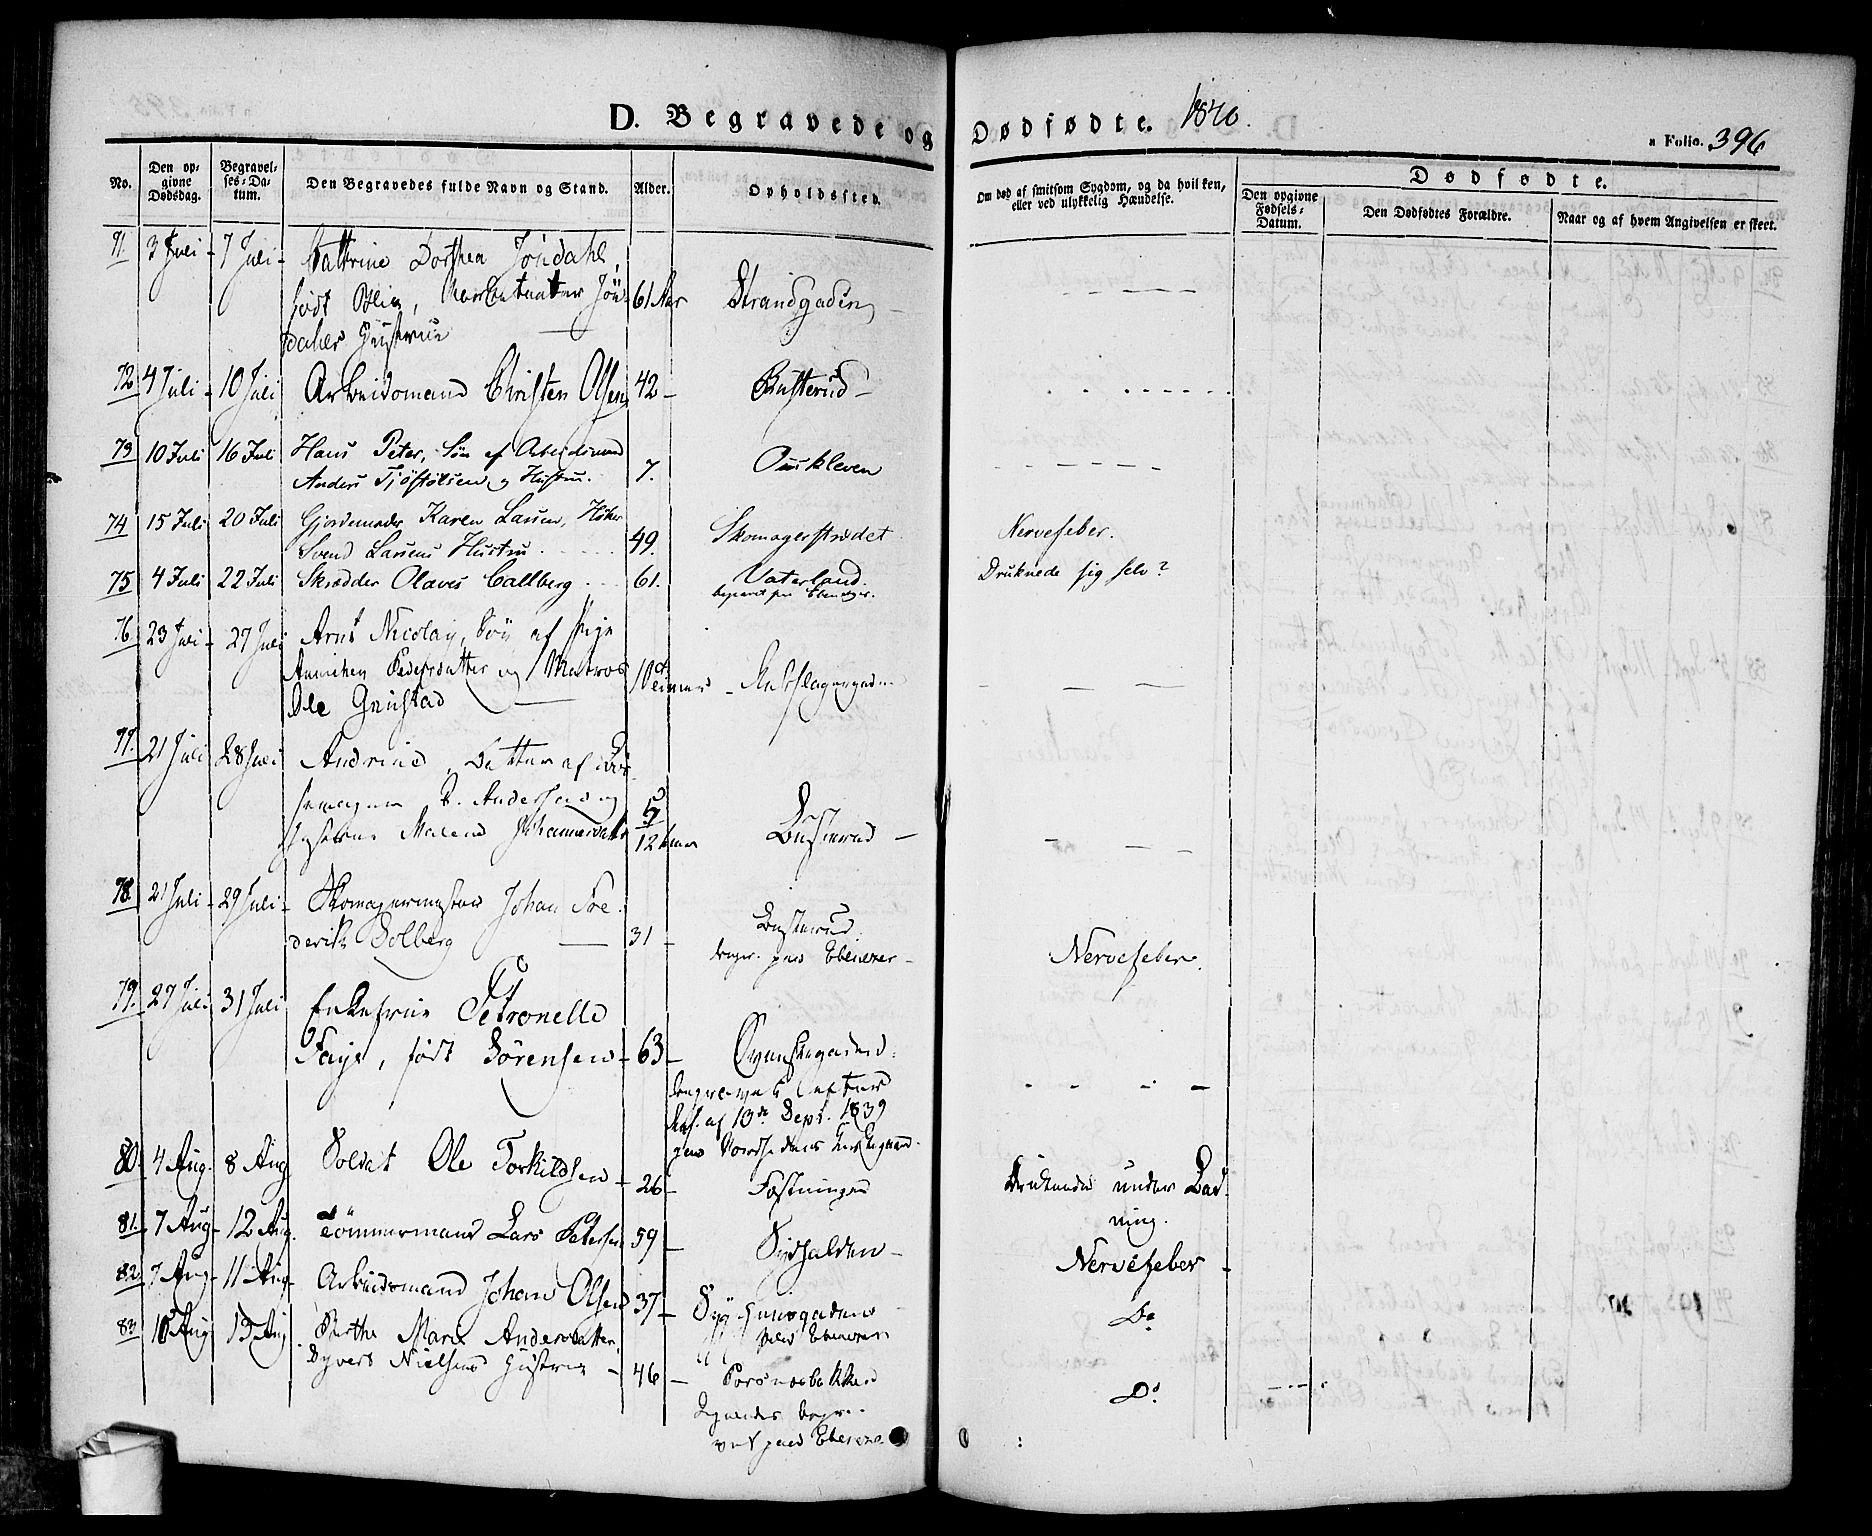 D. Begravede og Dødfødte. 1840.
a Folio. 396
No. Den opgivne Dødsdag. Begravelses-Datum. Den Begravedes fulde Navn og Stand. Alder. Opholdssted. Om død af smitsom Sygdom, og da hvilken, eller ved ulykkelig Hændelse. Dødfødte.
Den opgivne Fødsels-Datum. Den Dødfødtes Forældre. Naar og af hvem Angivelsen er skeet.
71. 3 Juli - 7 Juli - Cathrine Dorthea Jöndahl,
født Jön- 61 Aar Strandgaden
dahls Hustrue
72 4 Juli - 10 Juli Arbeidsmand Christen Olsen 42 - Busterud -
73 10 Juli 16 Juli Hans Peter, Søn af Arbeidsmand
Anders Tjøstølsen og Hustru. 7. Ouskleven
74 15 Juli 20 Juli Gjordemoder Karen Larsen, Høker
Svend Larsens Hustru. 49. Skomagerstrædet Nervefeber.
75 4 Juli 22 Juli Skrædder Olaves Callberg 61. Vaterland. Druknede sig selv?
76 23 Juli - 27 Juli Arnt Nicolay, Søn af Pige
Annichen Pedersdatter og Matros
Ole Grimstad
77. 21 Juli 28 Juli Andrine, Datter af
P. Andersen og
Hustrue Malene Johannesdatter 12 Busterud -
78. 21 Juli - 29 Juli - Skomagermester Johan Fre-
derik Solberg 31 - Busterud.
begr. paa Ebenezer - Nervefeber.
79. 27 Juli 31 Juli Enkefrue Petronelle
Faye, født Sörensen - 63 -
begravet efter
Res. af 13de Sept. 1839
paa Kirkegaard.
80. 4 Aug. 8 Aug Soldat Ole Torkildsen - 26 - Fæstningen Druknede under Bad-
ning.
81. 7 Aug - 12 Aug. Tömmermand Lars Petersen 59 - Sydhalden - Nervefeber -
82. 7 Aug - 11 Aug - Arbeidsmand Johan Olsen 37 - Syghuusgaden
paa Ebenezer Do
83 10 Aug 13 Aug Berthe Marie Andersdatter,
Syvert Nielsens Hustrue - 46 - Dо.
begra-
vet paa Ebenezer